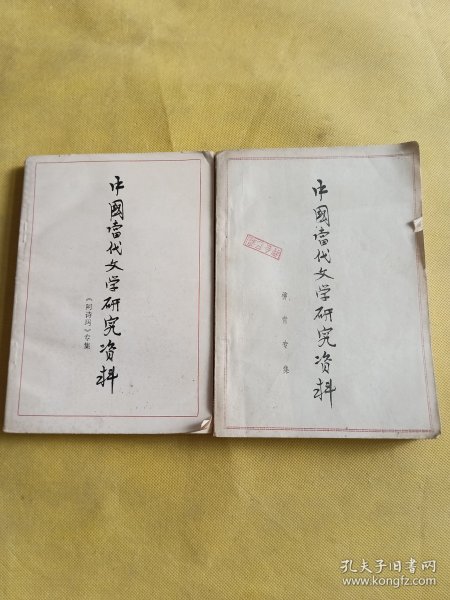 中國當代文学研究资料
《阿诗玛》专集
中國當代文学研究资料
专集
孔夫子旧书网
www.kongfz.com